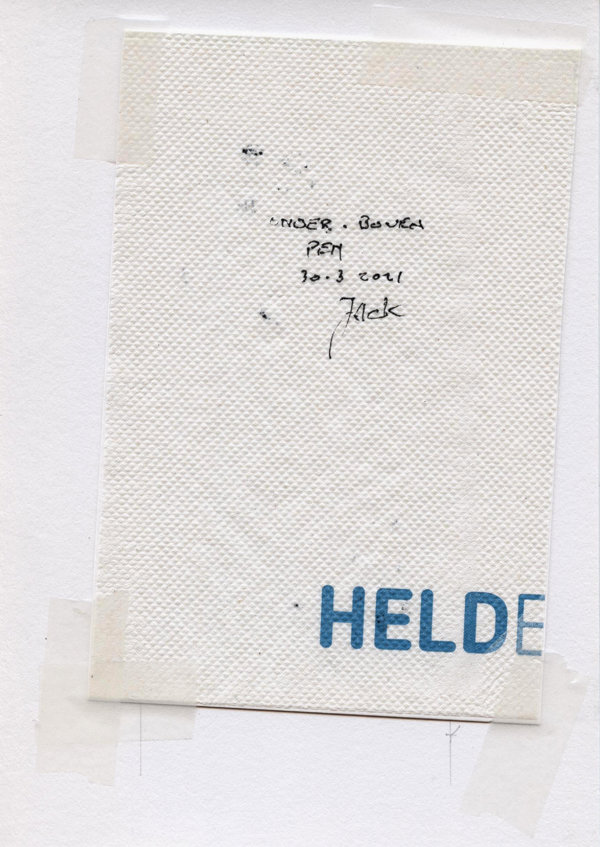 ONDER . BOVEN
PEN
30.3 2021
Jack
HELDE